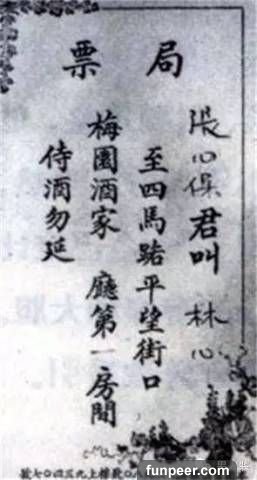 局票
張心俁君叫 林心
至四馬路平望街口
梅園酒家 廳第一房間
侍酒勿延
funpeer.com